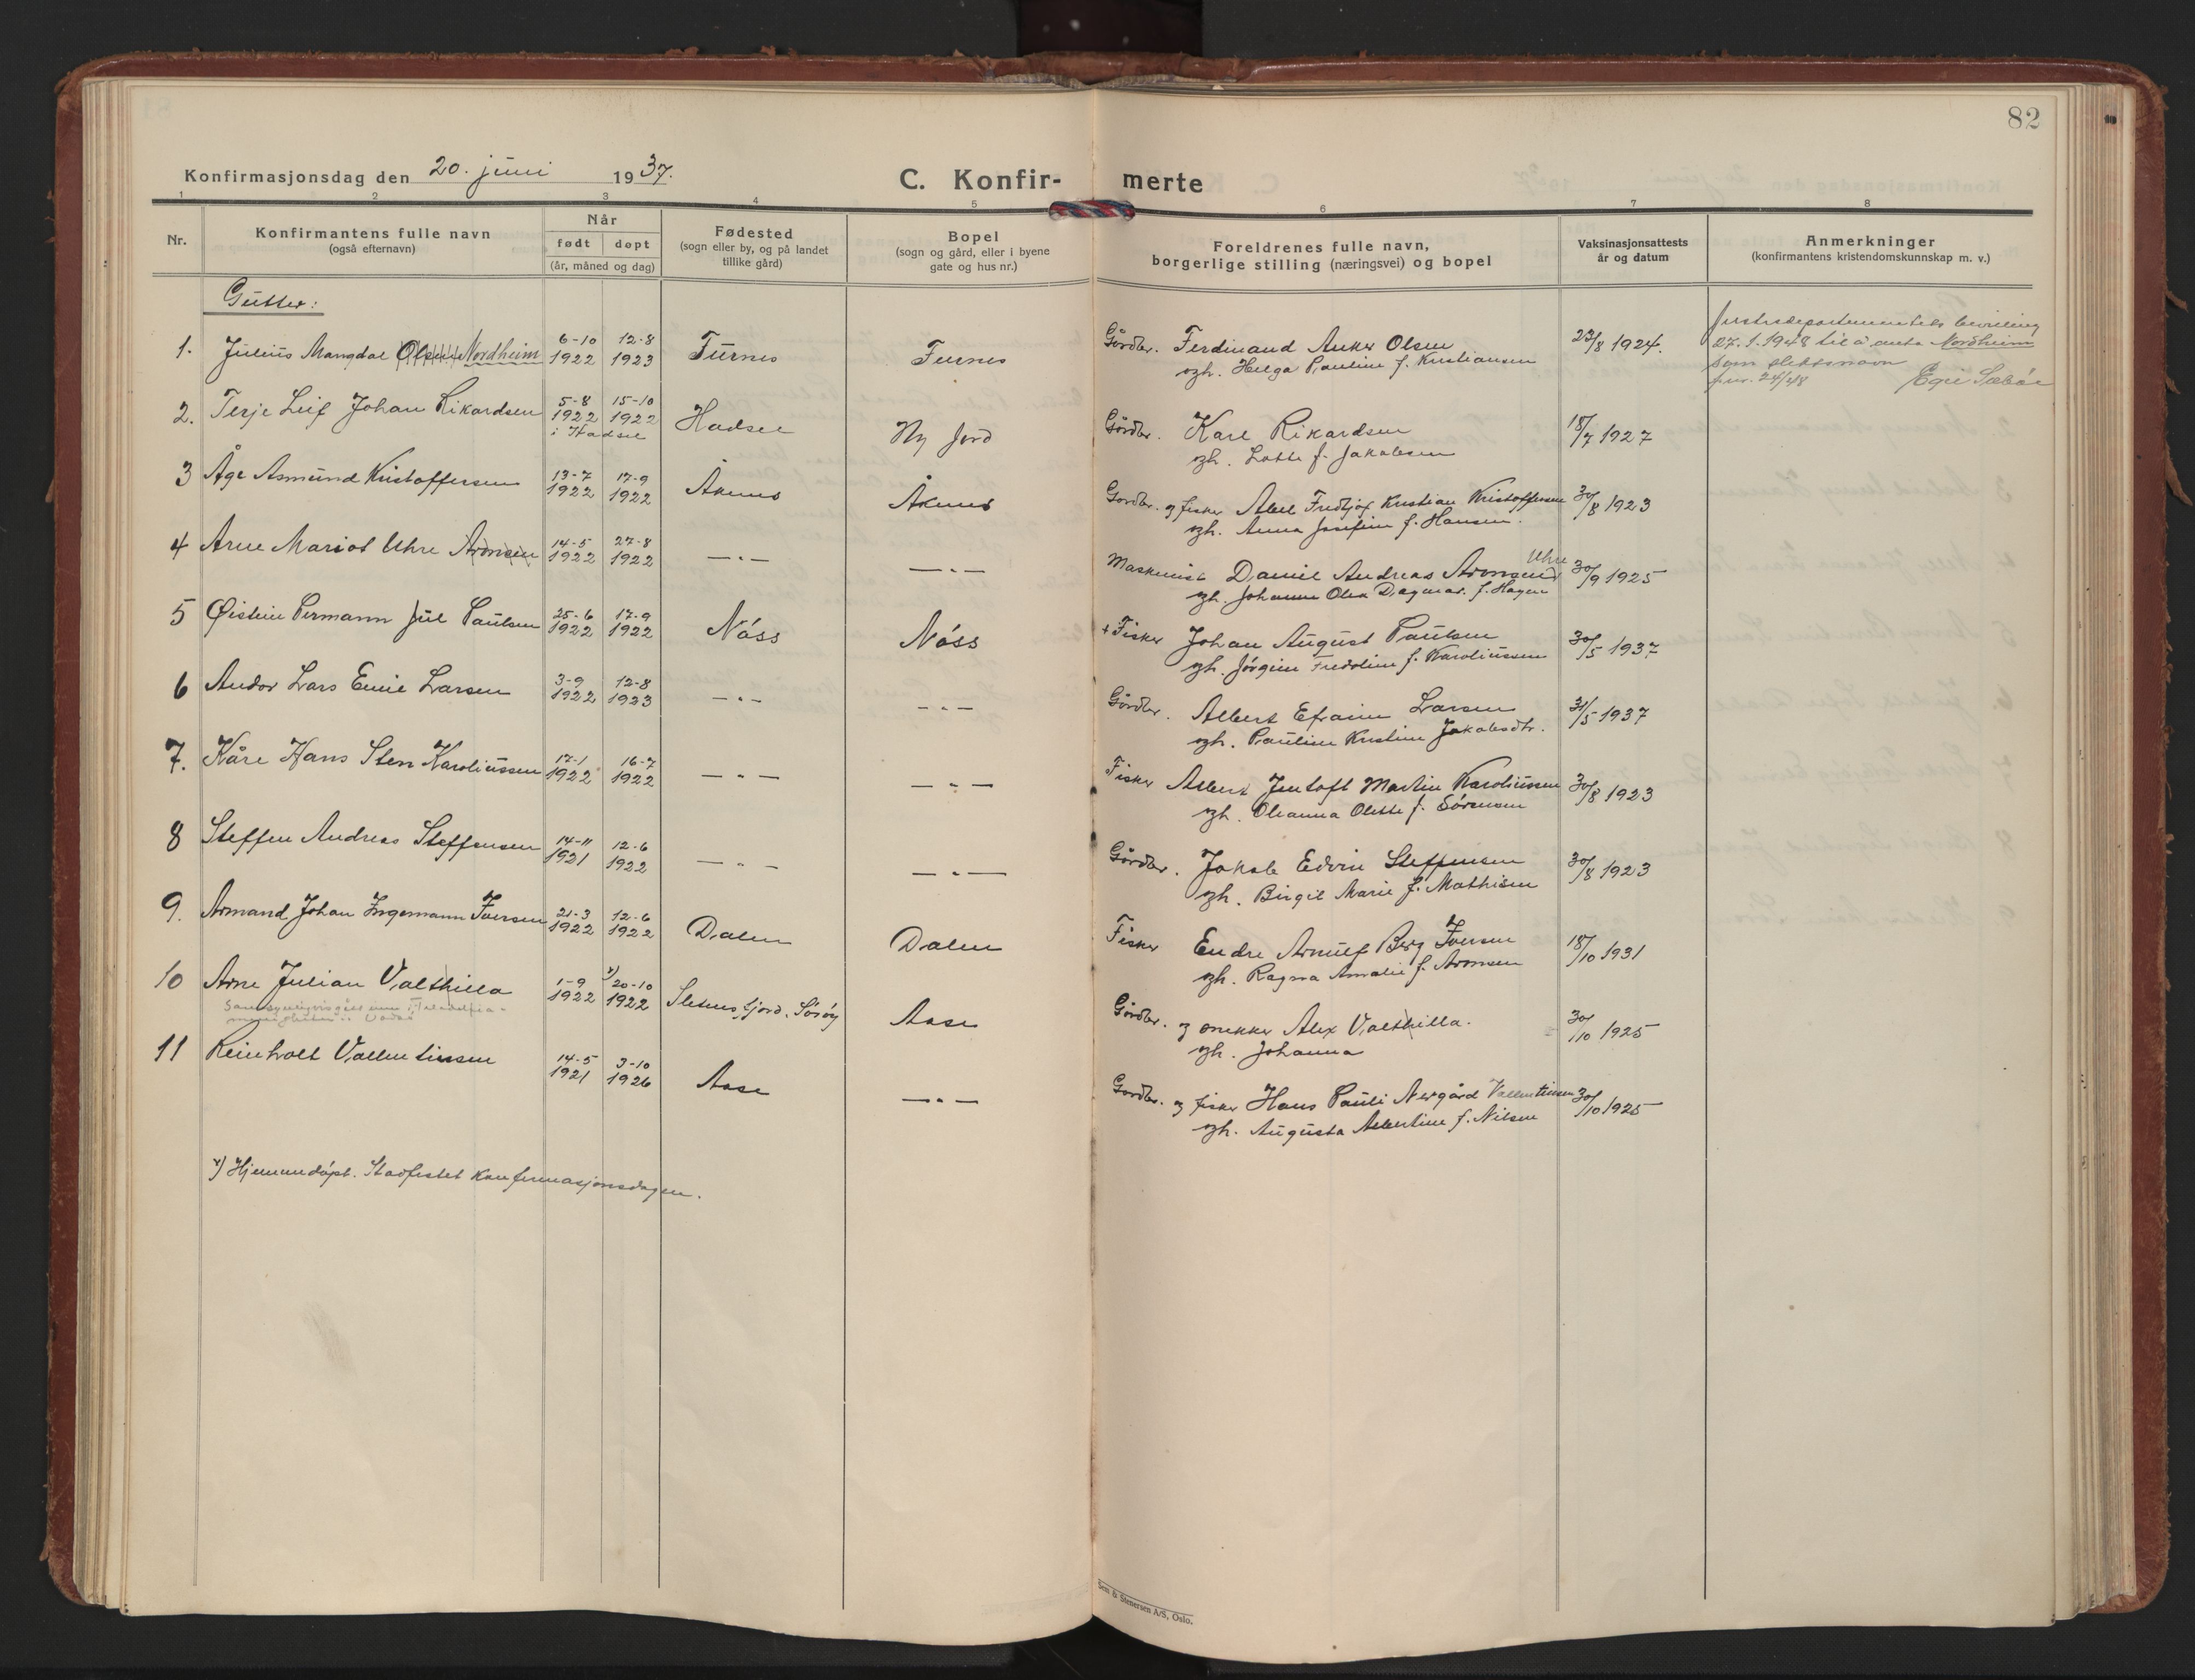 82
Konfirmasjonsdag den 20. juni 1937.
C. Konfir- merte
1 2 3 4 5 6 7 8
Nr.
Konfirmantens fulle navn
(også efternavn)
Når
født døpt
(år, måned og dag)
Fødested
(sogn eller by, og på landet
tillike gård)
Bopel
(sogn og gård, eller i byene
gate og hus nr.)
Foreldrenes fulle navn,
borgerlige stilling (næringsvei) og bopel
Vaksinasjonsattests
år og datum
Anmerkninger
(konfirmantens kristendomskunnskap m. v.)
Gutter:
1. Julius Mangdal Olsen Nordheim 6-10 1922 12-8 1923 Furnes Furnes
Gårdbr. Ferdinand Anker Olsen 23/8 1924.
og h. Helga Pauline f. Kristiansen
Justisdepartementets bevilling
27.1.1948 til å anta Nordheim
som slektsnavn
24/1 48 Egil Sæbøe
2. Terje Leif Johan Rikardsen 5-8 1922 15-10 1922 Hadsel Ny Jord
i Hadsel
Gårdbr. Karl Rikardsen 18/7 1927
og h. Lotte f. Jakobsen
3 Åge Asmund Kristoffersen 13-7 1922 17-9 1922 Åknes Åknes
Gårdbr. og fisker Abel Fredtjof Kristian Kristoffersen 30/8 1923
og h. Anna Josefine f. Hansen.
4 Arne Mariot Uhre Aronsen 14-5 1922 27-8 1922 — " — — " —
Maskinist Daniel Andreas Aronsen Uhre 30/9 1925
og h. Johanne Olea Dagmar f. Hagen
5 Øistein Permann Jul Paulsen 25-6 1922 17-9 1922 Nöss Nöss
+ Fisker Johan August Paulsen 30/5 1937
og h. Jørgine Fredoline f. Karoliussen
6 Andor Lars Emil Larsen 3-9 1922 12-8 1923 — " — — " —
Gårdbr. Albert Efraim Larsen 31/5 1937
og h. Pauline Kristine Jakobsdtr.
7. Kåre Hans Sten Karoliussen 17-1 1922 16-7 1922 — " — — " —
Fisker Albert Jentoft Martin Karoliussen 30/8 1923
og h. Oleanna Olette f. Sörensen
8 Steffen Andreas Steffensen 14-11 1921 12-6 1922 — " — — " —
Gårdbr. Jakob Edvin Steffensen 30/8 1923
og h. Birgit Marie f. Mathisen
9. Armand Johan Ingemann Iversen 21-3 1922 12-6 1922 Dalen Dalen
Fisker Endre Arnulf Berg Iversen 18/10 1931
og h. Ragna Amalie f. Aronsen
10 Arne Julian Valthilla 1-9 1922 x) 20-10 1922 Sletnesfjord, Sörøy Aase
Gårdbr. og snekker Alex Valthilla. 30/10 1925
og h. Johanna
11 Reinholt Vallentinsen 14-5 1921 3-10 1926 Aase — " —
Gårdbr. og fisker Hans Pauli Nergård Vallentinsen 30/10 1925
og h. Augusta Albertine f. Nilsen
x) Hjemmedöpt. Stadfestet konfirmasjonsdagen.
Sem & Stenersen A/S, Oslo.